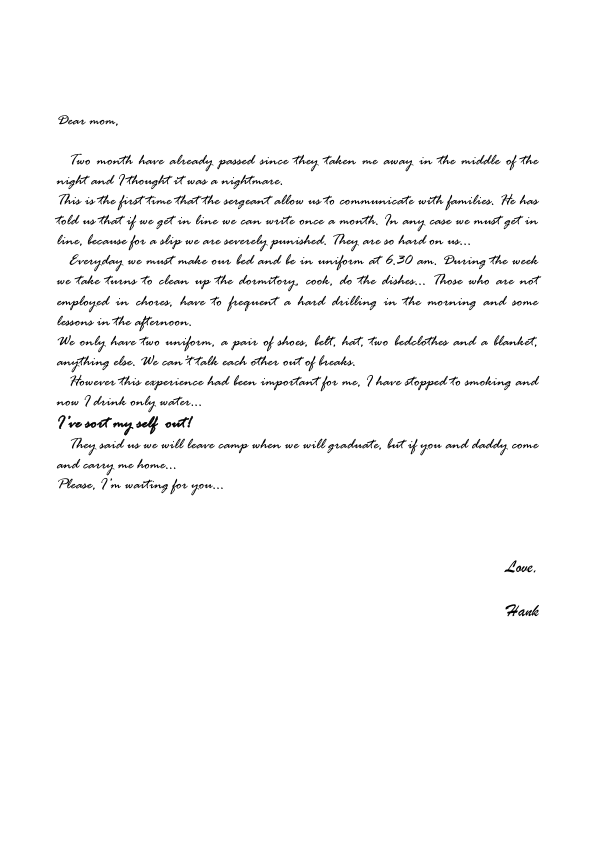 Dear mom,
Two month have already passed since they taken me away in the middle of the
night and I thought it was a nightmare.
This is the first time that the sergeant allow us to communicate with families. He has
told us that if we get in line we can write once a month. In any case we must get in
line, because for a slip we are severely punished. They are so hard on us...
Everyday we must make our bed and be in uniform at 6.30 am. During the week
we take turns to clean up the dormitory, cook, do the dishes... Those who are not
employed in chores, have to frequent a hard drilling in the morning and some
lessons in the afternoon.
We only have two uniform, a pair of shoes, belt, hat, two bedclothes and a blanket,
anything else. We can't talk each other out of breaks.
However this experience had been important for me, I have stopped to smoking and
now I drink only water...
I've sort my self out!
They said us we will leave camp when we will graduate, but if you and daddy come
and carry me home...
Please, I'm waiting for you...
Love.
Hank